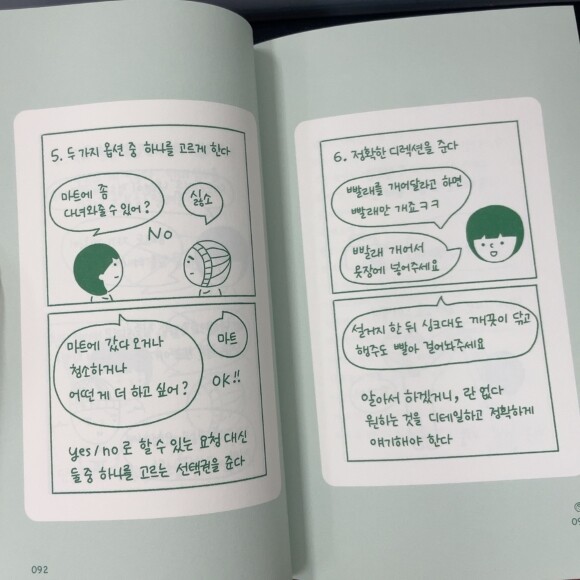 5. 두 가지 옵션 중 하나를 고르게 한다
마트에 좀
다녀와줄 수 있어?
싫소
NO
마트에 갔다 오거나
청소하거나
어떤 게 더 하고 싶어?
마트
OK!!
yes/no 로 할 수 있는 요청 대신
둘중 하나를 고르는 선택권을 준다
092
6. 정확한 디렉션을 준다
빨래를 개어달라고 하면
빨래만 개죠ㅋㅋ
빨래 개어서
옷장에 넣어주세요
설거지 한 뒤 싱크대도 깨끗이 닦고
행주도 빨아 걸어놔주세요
알아서 하겠거니, 란 없다
원하는 것을 디테일하고 정확하게
얘기해야 한다